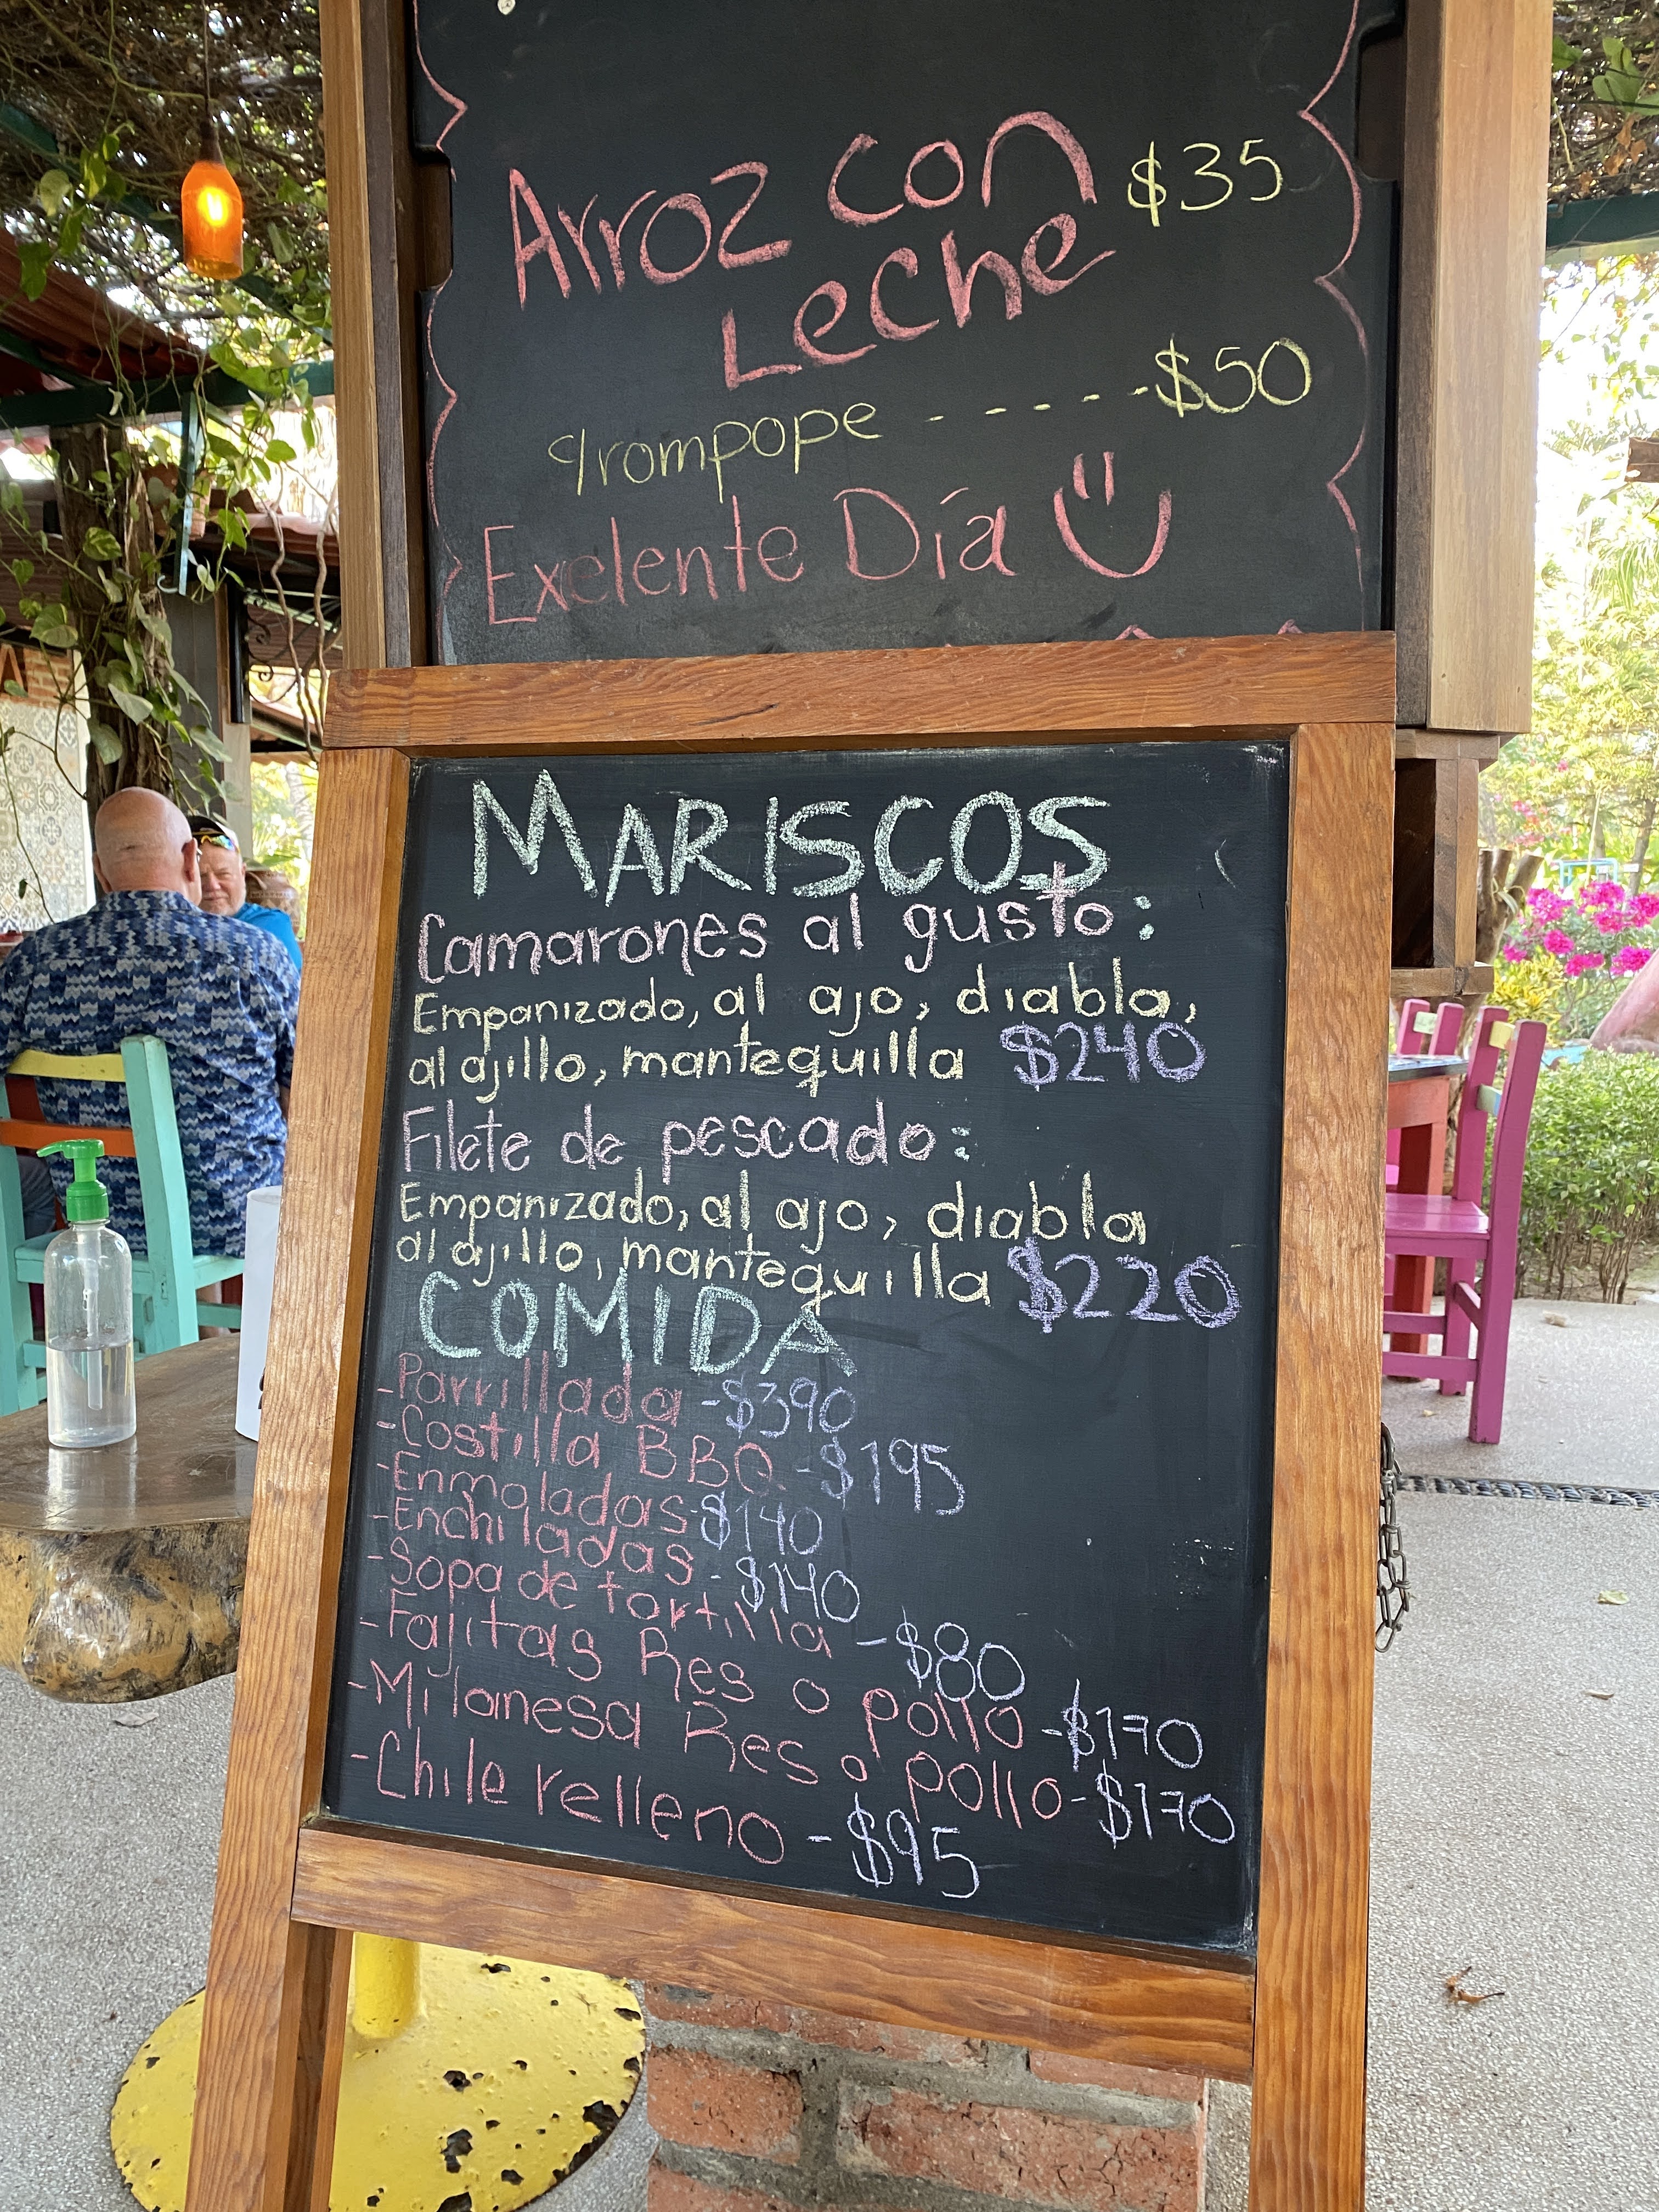 Arroz con $35
Leche
rompope - - - - - $50
Exelente Día
MARISCOS
Camarones al gusto:
Empanizado, al ajo, diabla,
al ajillo, mantequilla $240
Filete de pescado:
Empanizado, al ajo, diabla
al ajillo, mantequilla $220
COMIDA
-Parrillada -$390
-Costilla BBQ -$195
-Enmoladas-$140
-Enchiladas -$140
-Sopa de tortilla -$80
-Fajitas Res o pollo -$170
-Milanesa Res o pollo-$170
-Chile relleno -$95